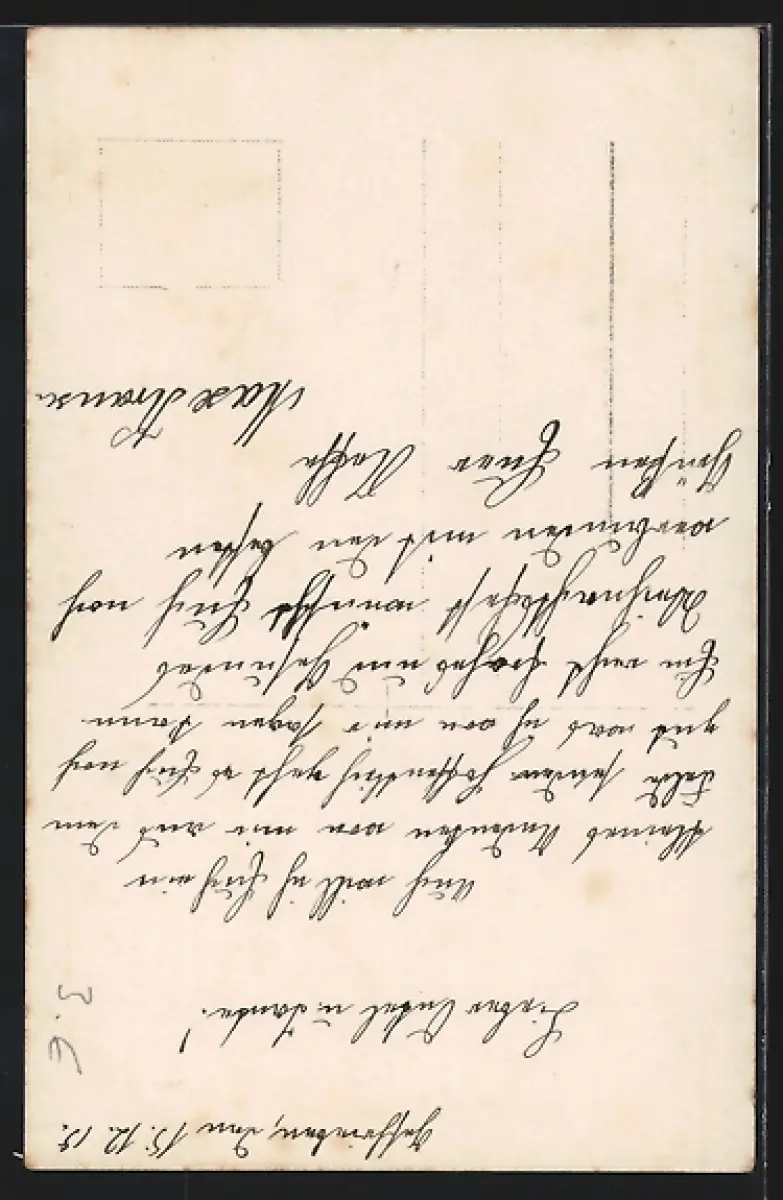 den 15. 12. 15.
Lieber Onkel u. Tante!
Auch will ich Euch ein
kleines Andenken von mir aus dem
Felde senden hoffentlich geht es Euch noch
gut was ich von mir sagen kann
Ein recht frohes und gesundes
Weihnachtsfest wünscht Euch noch
verbunden mit den besten
Grüßen Euer Neffe
Max